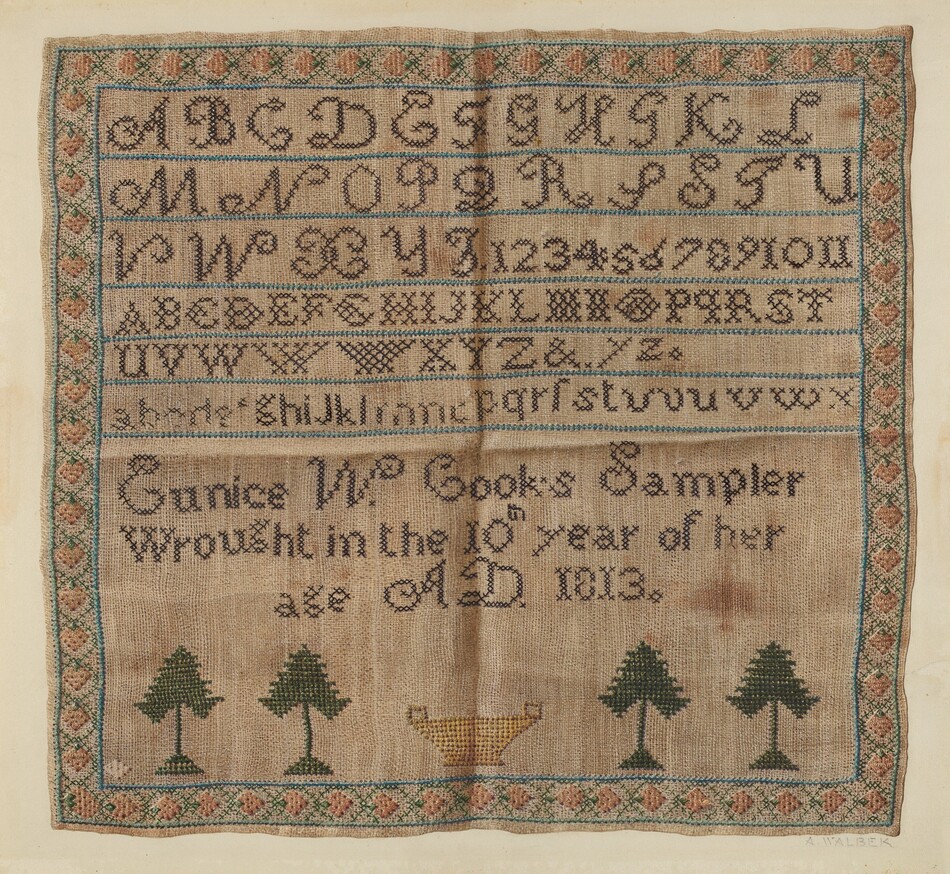 A B C D E F G H G K L
M N O P Q R S S T U
V W X Y J 1 2 3 4 5 6 7 8 9 10 11
A B C D E F G H I J K L M N O P q R S T
U V W X Y Z & . Y Z .
a b c d e f g h i J k l m n o p q r ſ s t v v u v w x
Eunice W. Cook's Sampler
Wrought in the 10th year of her
age A D. 1813.
A. WALBEK